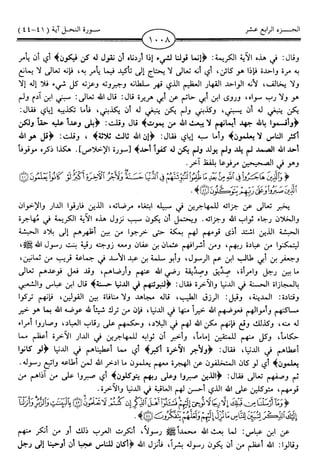 الجزء الرابع عشر
١٠٠٨
سورة النحل آية (٤١-٤٤)
وقال: في هذه الآية الكريمة: ﴿إنما قولنا لشيء إذا أردناه أن نقول له كن فيكون﴾ أي أن يأمر
به مرة واحدة فإذا هو كائن، أي أنه تعالى لا يحتاج إلى تأكيد فيما يأمر به، فإنه تعالى لا يمانع
ولا يخالف، لأنه الواحد القهار العظيم الذي قهر سلطانه وجبروته وعزته كل شيء فلا إله إلا
هو ولا رب سواه، وروى ابن أبي حاتم عن أبي هريرة قال: قال الله تعالى: سبني ابن آدم ولم
يكن ينبغي له أن يسبني، وكذبني ولم يكن ينبغي له أن يكذبني، فأما تكذيبه إياي فقال:
﴿وأقسموا بالله جهد أيمانهم لا يبعث الله من يموت﴾ قال وقلت: ﴿بلى وعداً عليه حقاً ولكن
أكثر الناس لا يعلمون﴾ وأما سبه إياي فقال: ﴿إن الله ثالث ثلاثة﴾ ، وقلت: ﴿قل هو الله
أحد الله الصمد لم يلد ولم يولد ولم يكن له كفواً أحد﴾ [سورة الإخلاص]. هكذا ذكره موقوفاً
وهو في الصحيحين مرفوعا بلفظ آخر.
﴿وَالَّذِينَ هَاجَرُوا فِي اللَّهِ مِن بَعْدِ مَا ظُلِمُوا لَنُبَوِّئَنَّهُمْ فِي الدُّنْيَا حَسَنَةً وَلَأَجْرُ الْآخِرَةِ أَكْبَرُ لَوْ كَانُوا يَعْلَمُونَ ۝ الَّذِينَ
صَبَرُوا وَعَلَىٰ رَبِّهِمْ يَتَوَكَّلُونَ ۝﴾.
يخبر تعالى عن جزائه للمهاجرين في سبيله ابتغاء مرضاته، الذين فارقوا الدار والإخوان
والخلان رجاء ثواب الله وجزائه. ويحتمل أن يكون سبب نزول هذه الآية الكريمة في مُهاجرة
الحبشة الذين اشتد أذى قومهم لهم بمكة حتى خرجوا من بين أظهرهم إلى بلاد الحبشة
ليتمكنوا من عبادة ربهم، ومن أشرافهم عثمان بن عفان ومعه زوجته رقية بنت رسول الله ﷺ،
وجعفر بن أبي طالب ابن عم الرسول، وأبو سلمة بن عبد الأسد في جماعة قريب من ثمانين،
ما بين رجل وامرأة، صدِّيق وصدِّيقة رضي الله عنهم وأرضاهم، وقد فعل فوعدهم تعالى
بالمجازاة الحسنة في الدنيا والآخرة فقال: ﴿لنبوئنهم في الدنيا حسنة﴾ قال ابن عباس والشعبي
وقتادة: المدينة، وقيل: الرزق الطيب، قاله مجاهد ولا منافاة بين القولين، فإنهم تركوا
مساكنهم وأموالهم فعوضهم الله خيراً منها في الدنيا، فإن من ترك شيئاً لله عوضه الله بما هو خير
له منه، وكذلك وقع فإنهم مكن الله لهم في البلاد، وحكمهم على رقاب العباد، وصاروا أمراء
حكاماً، وكل منهم للمتقين إماماً، وأخبر أن ثوابه للمهاجرين في الدار الآخرة أعظم مما
أعطاهم في الدنيا، فقال: ﴿ولأجر الآخرة أكبر﴾ أي مما أعطيناهم في الدنيا ﴿لو كانوا
يعلمون﴾ أي لو كان المتخلفون عن الهجرة معهم يعلمون ما ادخر الله لمن أطاعه واتبع رسوله.
ثم وصفهم تعالى فقال: ﴿الذين صبروا وعلى ربهم يتوكلون﴾ أي صبروا على من آذاهم من
قومهم، متوكلين على الله الذي أحسن لهم العاقبة في الدنيا والآخرة.
﴿وَمَا أَرْسَلْنَا مِن قَبْلِكَ إِلَّا رِجَالًا نُّوحِي إِلَيْهِمْ فَاسْأَلُوا أَهْلَ الذِّكْرِ إِن كُنتُمْ لَا تَعْلَمُونَ ۝ بِالْبَيِّنَاتِ وَالزُّبُرِ وَأَنزَلْنَا
إِلَيْكَ الذِّكْرَ لِتُبَيِّنَ لِلنَّاسِ مَا نُزِّلَ إِلَيْهِمْ وَلَعَلَّهُمْ يَتَفَكَّرُونَ ۝﴾.
عن ابن عباس: لما بعث الله محمداً ﷺ رسولاً، أنكرت العرب ذلك أو من أنكر منهم
وقالوا: الله أعظم من أن يكون رسوله بشراً، فأنزل الله ﴿أكان للناس عجبا أن أوحينا إلى رجل